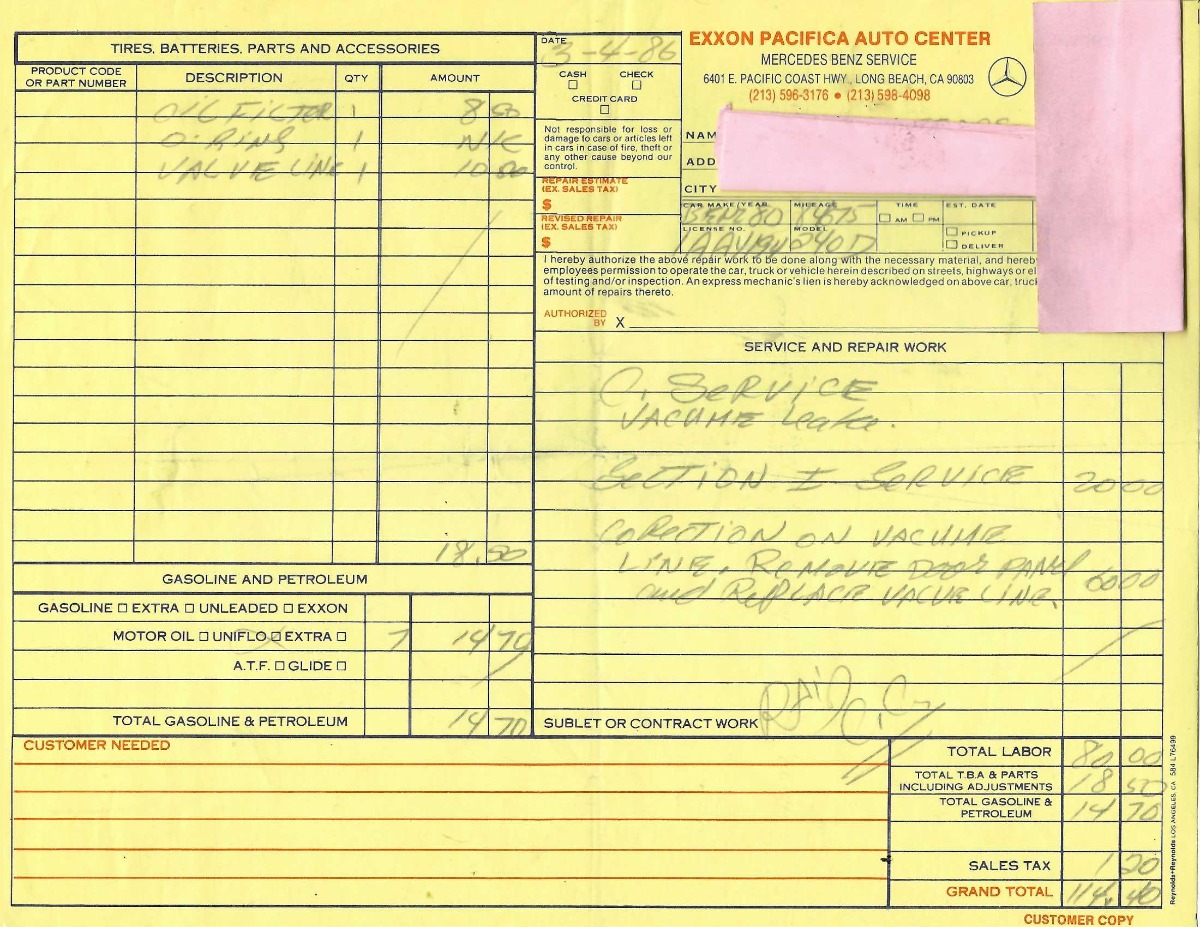 TIRES, BATTERIES, PARTS AND ACCESSORIES
PRODUCT CODE OR PART NUMBER DESCRIPTION QTY AMOUNT
OIL FILTER 1 8 50
O. RING 1 N/C
VALVE LINE 1 10 00
18.50
GASOLINE AND PETROLEUM
GASOLINE ☐ EXTRA ☐ UNLEADED ☐ EXXON
MOTOR OIL ☐ UNIFLO ☐ EXTRA ☐ 7 14 70
A.T.F. ☐ GLIDE ☐
TOTAL GASOLINE & PETROLEUM 14 70
DATE
3-4-86
CASH ☐ CHECK ☐
CREDIT CARD ☐
Not responsible for loss or
damage to cars or articles left
in cars in case of fire, theft or
any other cause beyond our
control.
REPAIR ESTIMATE
(EX. SALES TAX)
$
REVISED REPAIR
(EX. SALES TAX)
$
EXXON PACIFICA AUTO CENTER
MERCEDES BENZ SERVICE
6401 E. PACIFIC COAST HWY., LONG BEACH, CA 90803
(213) 596-3176 • (213) 598-4098
NAM
ADD
CITY
CAR MAKE/YEAR MILEAGE TIME EST. DATE
BENZ 80 84675 ☐ AM ☐ PM
LICENSE NO. MODEL ☐ PICKUP
1AAV194 240D ☐ DELIVER
I hereby authorize the above repair work to be done along with the necessary material, and hereb
employees permission to operate the car, truck or vehicle herein described on streets, highways or el
of testing and/or inspection. An express mechanic's lien is hereby acknowledged on above car, truck
amount of repairs thereto.
AUTHORIZED
BY X
SERVICE AND REPAIR WORK
C. SERVICE
VACUME Leake.
SECTION I SERVICE 20 00
CORECTION ON VACUME
LINE. REMOVE DOOR PANEL
and REPLACE VACUE LINE. 60 00
SUBLET OR CONTRACT WORK
CUSTOMER NEEDED
TOTAL LABOR 80 00
TOTAL T.B.A & PARTS
INCLUDING ADJUSTMENTS 18 50
TOTAL GASOLINE &
PETROLEUM 14 70
SALES TAX 1 20
GRAND TOTAL 114. 40
CUSTOMER COPY
Reynolds+Reynolds LOS ANGELES, CA 584 L76499